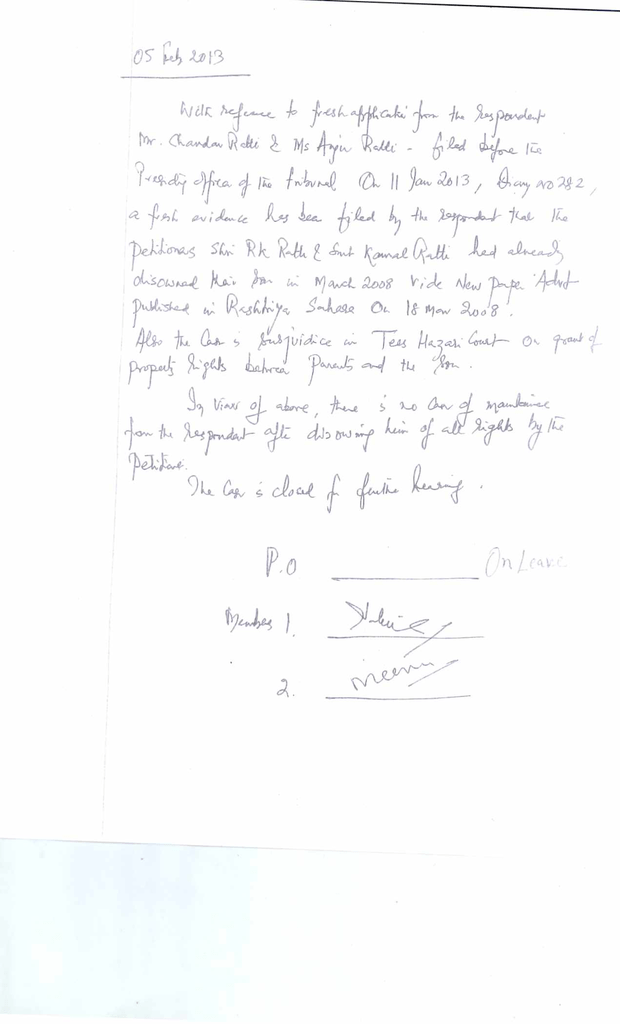 05 Feb 2013
With reference to fresh application from the respondent
Mr. Chandan Ratti & Ms Anju Ratti - filed before the
Presiding Officer of the tribunal On 11 Jan 2013, Diary no 282,
a fresh evidence has been filed by the respondent that the
petitioners Shri RK Ratti & Smt Kamal Ratti had already
disowned their Son in March 2008 Vide News paper Advt
published in Rashtriya Sahara On 18 Mar 2008.
Also the Case is Subjudice in Tees Hazari Court on grant of
property rights between Parents and the Son.
In View of above, there is no Case of maintaince
from the respondent after disowning him of all rights by the
Petitioner.
The Case is closed for further hearing.
P.O On Leave
Members 1.
2. Meenu